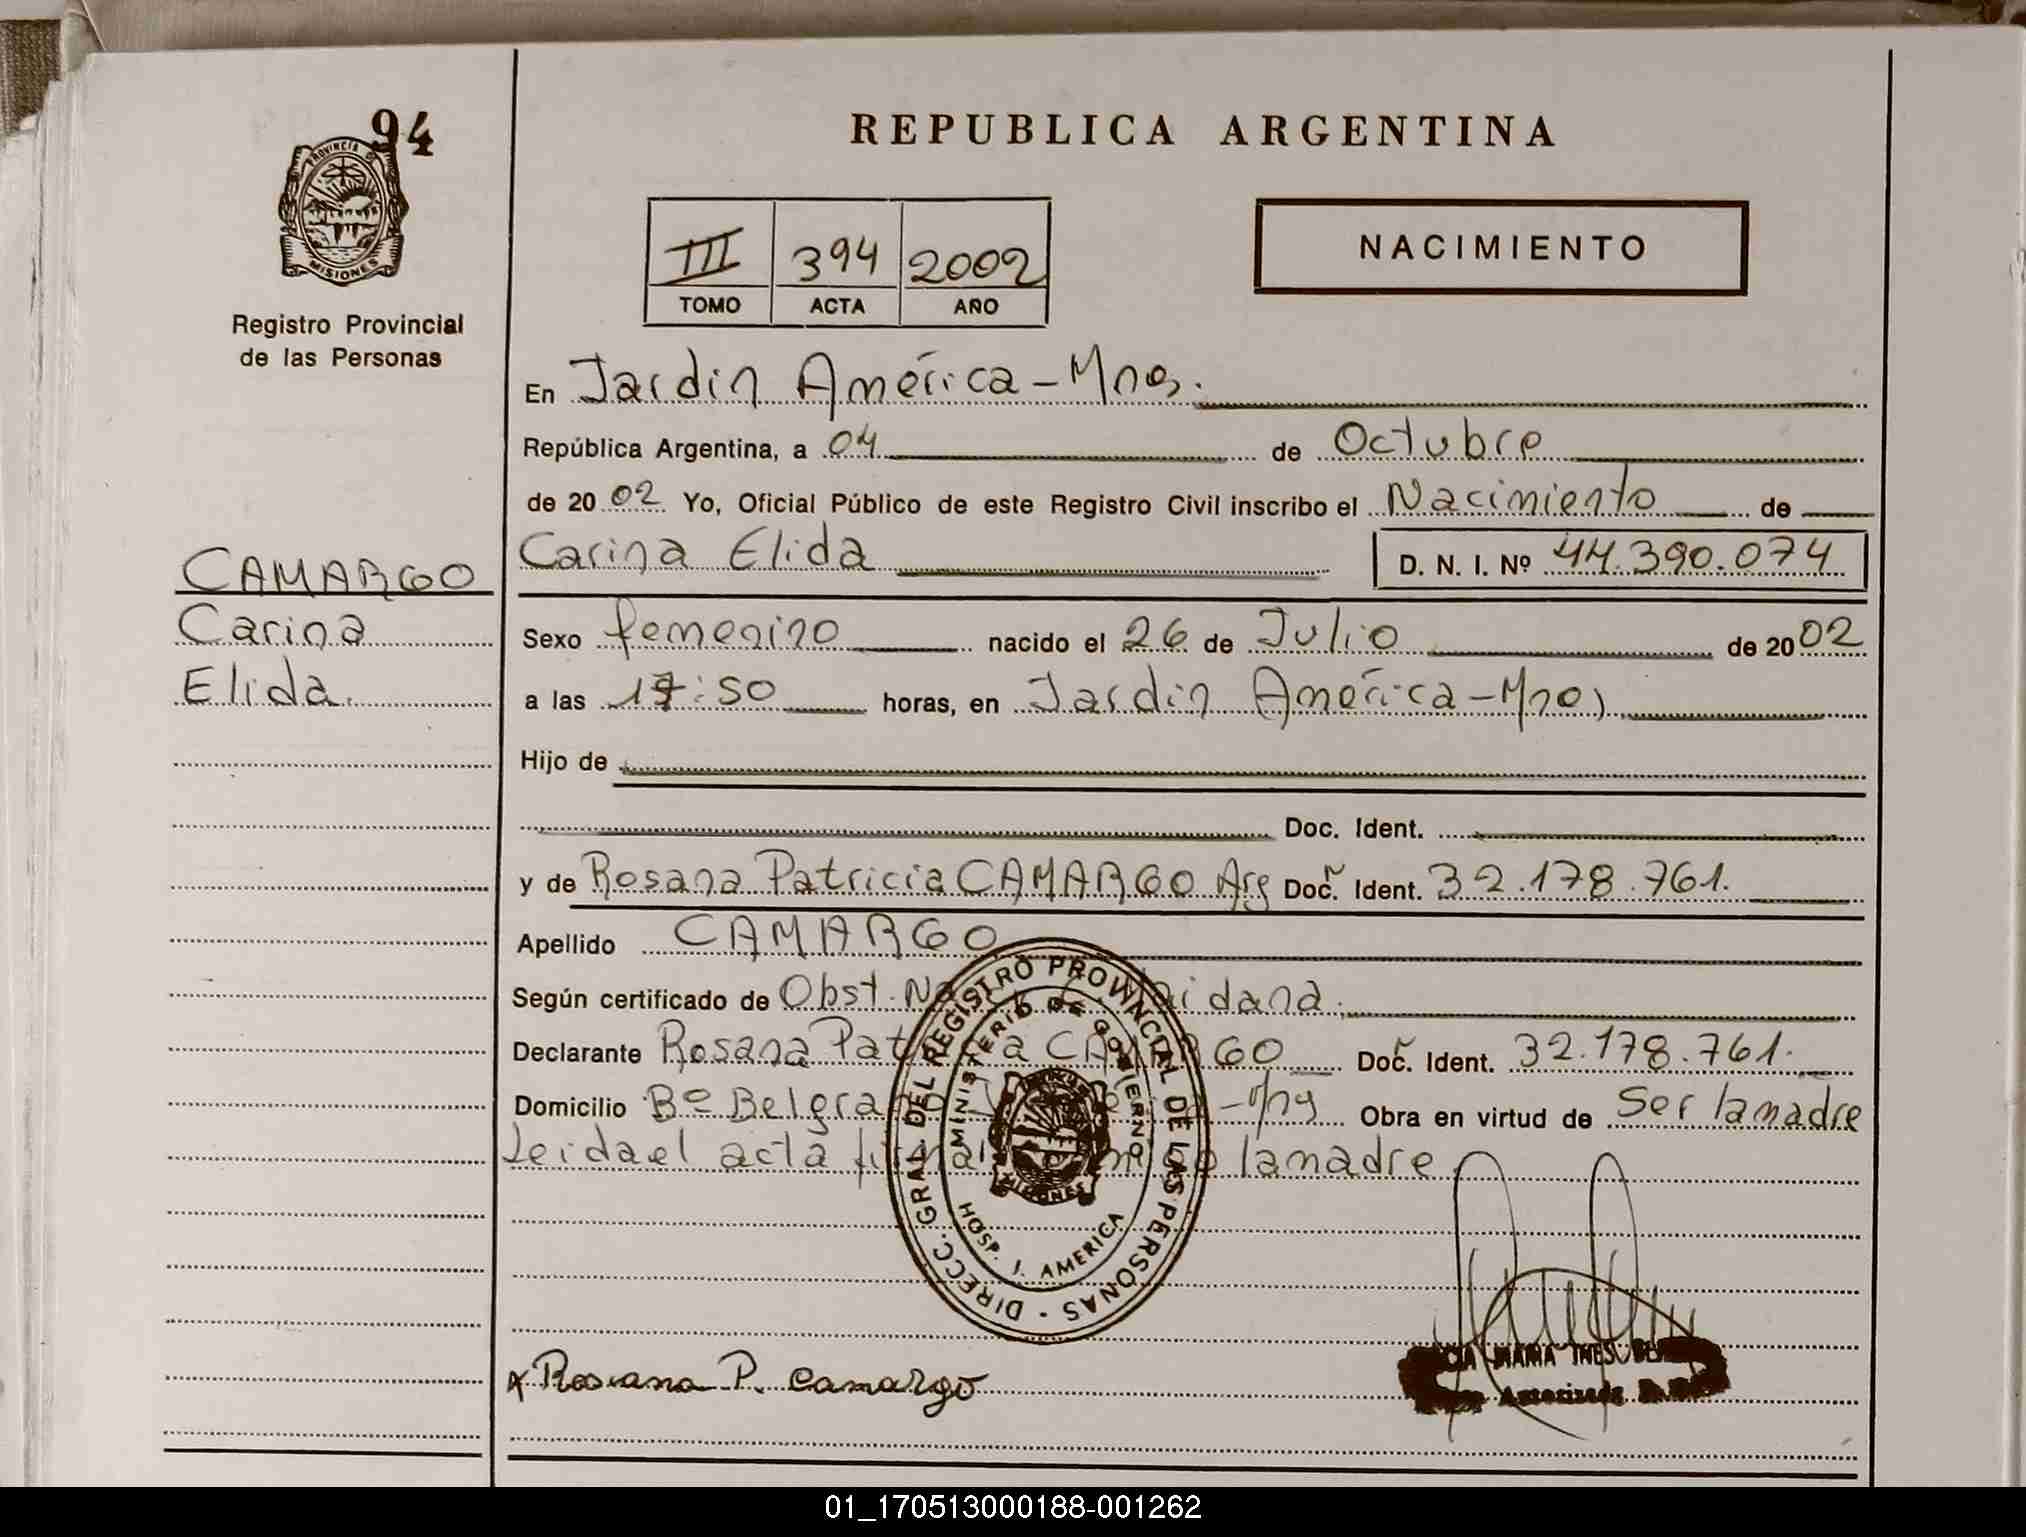 94
PROVINCIA DE
MISIONES
Registro Provincial
de las Personas
CAMARGO
Carina
Elida.
REPUBLICA ARGENTINA
III 394 2002
TOMO ACTA AÑO
NACIMIENTO
En Jardin América-Mnes.
República Argentina, a 04 de Octubre
de 2002 Yo, Oficial Público de este Registro Civil inscribo el Nacimiento de
Carina Elida D. N. I. Nº 44.390.074
Sexo femenino nacido el 26 de Julio de 2002
a las 17:50 horas, en Jardin América-Mnes
Hijo de
Doc. Ident.
y de Rosana Patricia CAMARGO Arg Doc. Ident. 32.178.761.
Apellido CAMARGO
Según certificado de Obst.
Declarante Rosana Patricia CAMARGO Doc. Ident. 32.178.761.
Domicilio Bº Belgrano Obra en virtud de Ser la madre
Leida el acta la madre
DIRECC. GRAL. DEL REGISTRO PROVINCIAL DE LAS PERSONAS
MINISTERIO DE GOBIERNO
MISIONES
HOSP. J. AMERICA
Rosana P. Camargo
MARIA INES
Autorizada
01_170513000188-001262